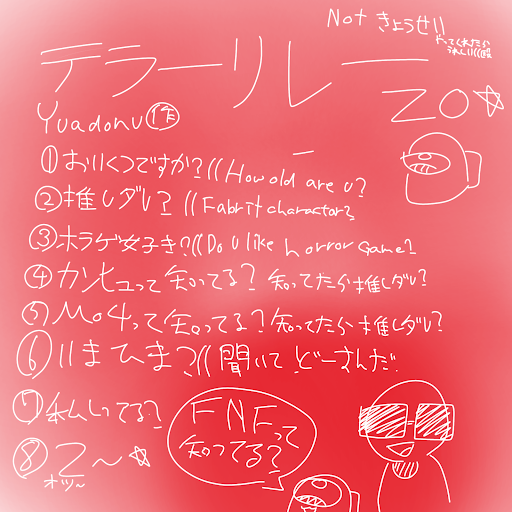 Not きょうせい!!
やってくれたら
うれしい((殴
テラーリレー
ZO☆
Yuadonu作
①おいくつですか?((How old are u?
②推しダレ? ((Fabrit charactor?
③ホラゲ好き?((Do U like horror Game?
④カンヒュって知ってる? 知ってたら推しダレ?
⑤Mo4って知ってる?知ってたら推しダレ?
⑥いまひま?((聞いてどーすんだ
⑦私しってる?
⑧乙~☆
オツ~
FNFって
知ってる?